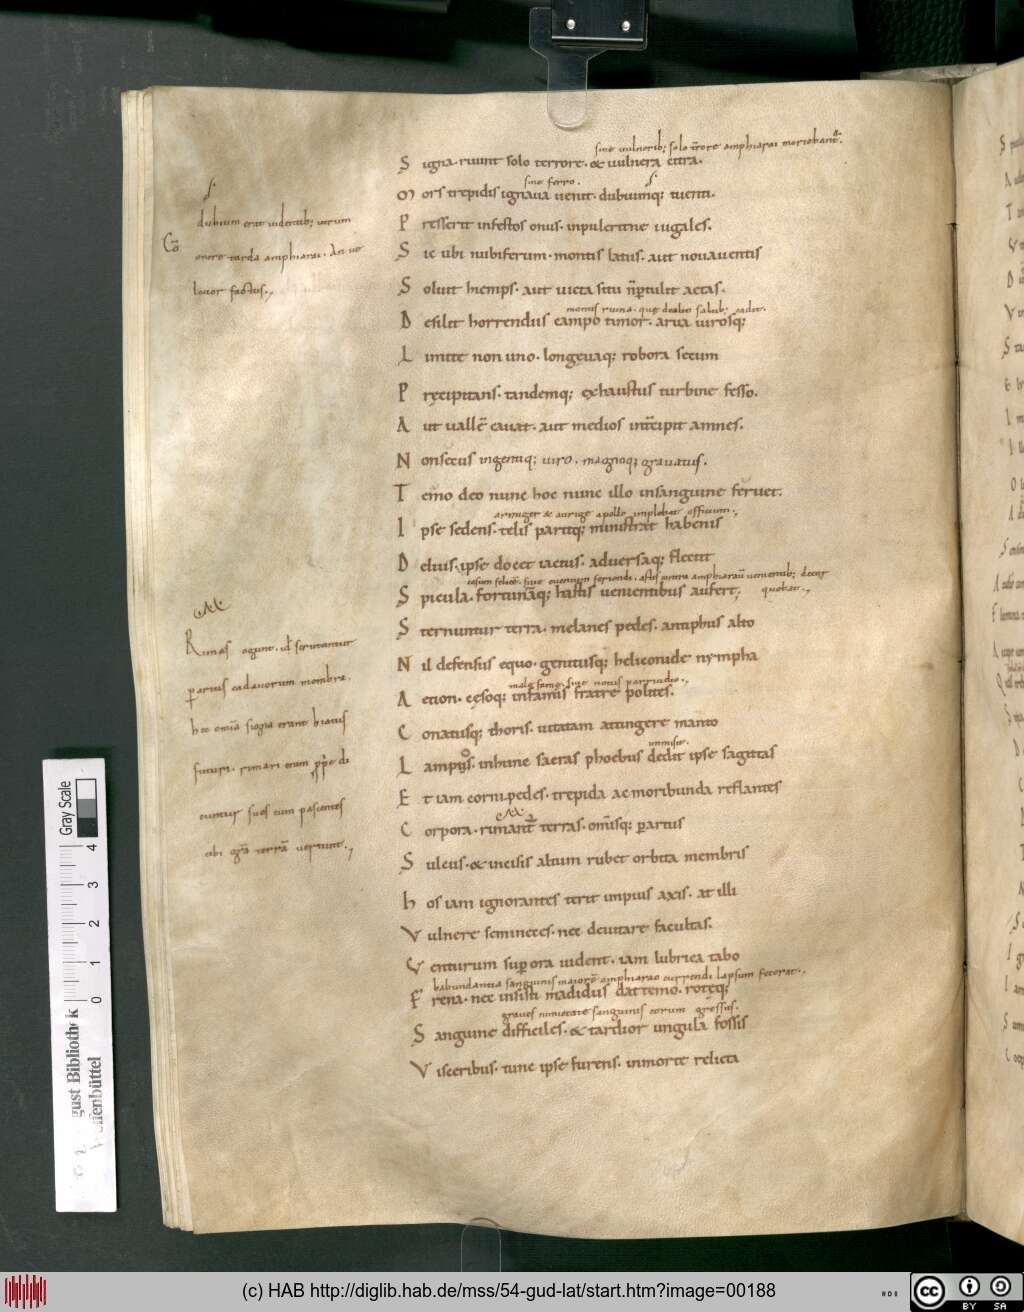 sine vulnerib; solo t̅rore amphiarai moriebant̅.
S igna. ruunt solo terrore. & uulnera citra.
sine ferro.
M ors trepidis ignaua uenit. dubiumq; tuenti.
P resserit infestos onus. inpuleritne iugales.
S ic ubi nubiferum. montis latus. aut noua uentis
S oluit hiemps. aut uicta situ n̅ ꝑtulit aetas.
montis ruina. que de alto saltib; cadit.
D esilit horrendus campo timor. arua uirosq;
L imite non uno. longęuaq; robora secum
P ręcipitans. tandemq; exhaustus turbine fesso.
A ut uallē cauat. aut medios int̅cipit amnes.
N on secus ingentiq; uiro. magnoq; grauatus.
T emo deo nunc hoc nunc illo in sanguine feruet.
armiger & aurige apollo implebat officium.
I pse sedens. telis pariterq; ministrat habenis
D elius. ipse docet iactus. aduersaq; flectit
S picula. fortunāq; hastis uenientibus aufert;
S ternuntur terra. melaneus pedes. antiphus alto
N il defensus equo. genitusq; heliconide nympha
A etion. cęsoq; infamis fratre polites.
C onatusq; thoris. uittatam attingere manto
inmisit.
L ampus. in hunc sacras phoebus dedit ipse sagittas
E t iam cornipedes. trepida ac moribunda reflantes
C orpora. rimant̅ terras. om̅isq; ꝑ artus
S ulcus. & incisis altum rubet orbita membris
h os iam ignorantes terit impius axis. at illi
V ulnere semineces. nec deuitare facultas.
V enturum suꝑ ora uident. iam lubrica tabo
habundantia sanguinis maiorē amphiarao currendi lapsum fecerat.
F rena. nec insisti madidus dat temo. rotęq;
graues nimietate sanguinis eorum gressus.
S anguine difficiles. & tardior ungula fossis
V isceribus. tunc ipse furens. in morte relicta
dubium erat uidentib; utrum
onere tarda amphiarai. An ue
locior factus.
Rimas agunt. uel scrutantur
per artus cadauorum membra.
hec om̅ia signa erant hiatus
futuri. rimari enim ꝓprie di
cuntur sues cum pascentes
cibi gr̅a terrā uertunt.
Gray Scale
4
3
2
1
0
(c) HAB http://diglib.hab.de/mss/54-gud-lat/start.htm?image=00188
cc BY SA